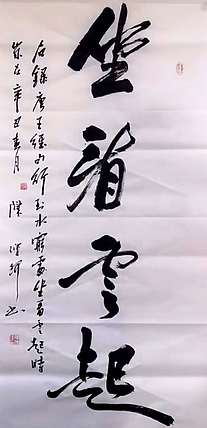 坐看雲起
右錄唐王維句行到水窮處坐看雲起時
歲在辛丑春月 陳 书